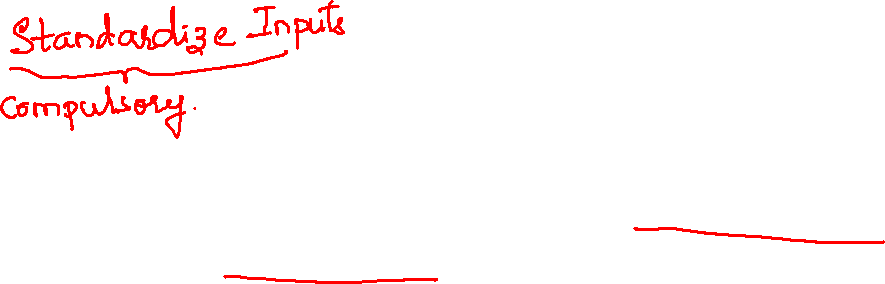 Standardize Inputs
Compulsory.